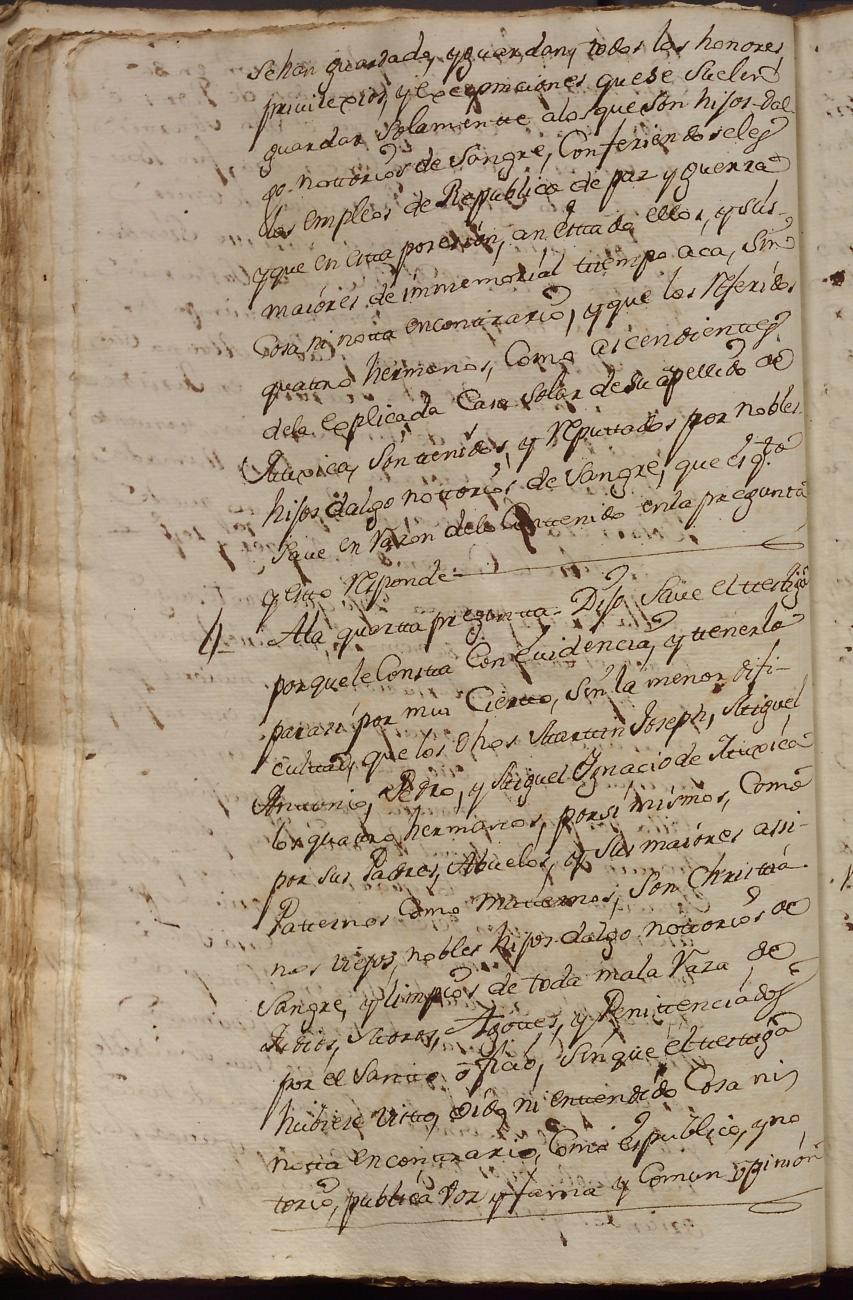 se han guardado, y guardan, todos los honores
priuilexios, y exempciones que se suelen
guardar Solamente a los que son hijos-dal
go notorios de Sangre, Confeirendoseles
los empleos de Republica de paz y guerra
y que en esta posesión, an estado ellos, y sus
maiores de immemorial tiempo aca, Sin
Cosa ni nota en contrario, y que los referidos
quatro hermanos, Como ascendientes
dela explicada Casa Solar de su apellido de
Son tenidos, y reputtados por nobles
hijos dalgo notorios de Sangre, que es qto
Saue en razon delo Contenido en la pregunta
y esto responde
4 Ala quarta pregunta- Dijo Saue el testigo
porque le Consta Con euidencia, y tenerlo
parasi por mui Cierto, Sin la menor difi-
cultad, que los dhos Martin Joseph, Miguel
Antonio, Pedro, y Miguel Ygnacio de
los quatro hermanos, por si mismos, Como
por sus Padres, Abuelos, y sus maiores assi-
Paternos Como maternos, Son Christia
nos viejos, nobles hijos-dalgo notorios de
Sangre, y limpios de toda mala raza de
Judios, Moros, Agotes, y Penitenciados
por el Santo oficio, Sin que el testigo
hubiese visto, oido ni entendido Cosa ni
nota en contrario, Como es publico, y no
torio, publica voz y fama y Comun opinión